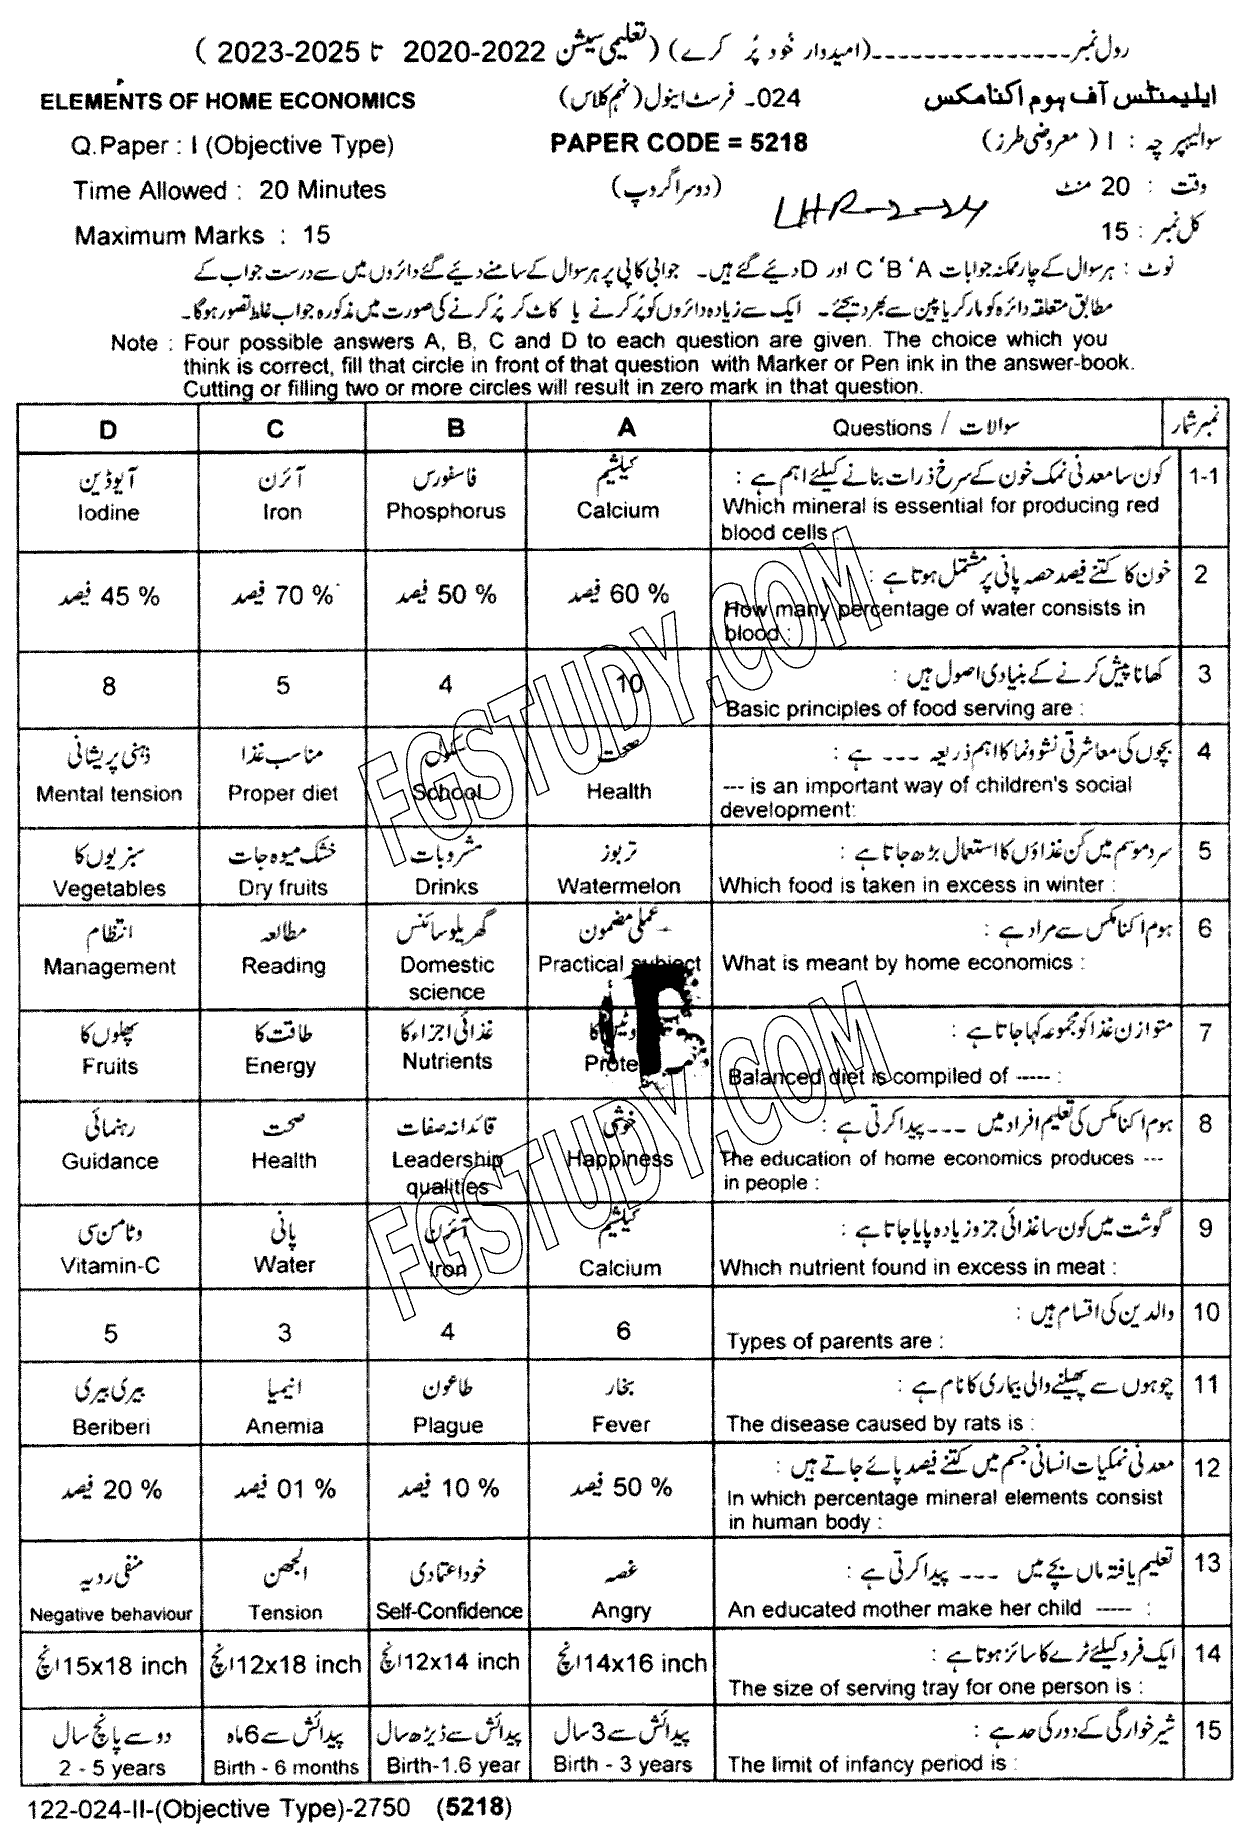 رول نمبر ---------------(امیدوار خود پُر کرے) (تعلیمی سیشن 2022-2020 تا 2025-2023 )
ایلیمنٹس آف ہوم اکنامکس 024۔ فرسٹ اینول (نہم کلاس) ELEMENTS OF HOME ECONOMICS
سوالیہ پرچہ : I ( معروضی طرز) PAPER CODE = 5218 Q.Paper : I (Objective Type)
وقت : 20 منٹ (دوسرا گروپ) Time Allowed : 20 Minutes
LHR-2-24
کل نمبر : 15 Maximum Marks : 15
نوٹ : ہر سوال کے چار ممکنہ جوابات A ‘ B ‘ C اور D دیئے گئے ہیں۔ جوابی کاپی پر ہر سوال کے سامنے دیئے گئے دائروں میں سے درست جواب کے
مطابق متعلقہ دائرہ کو مارکر یا پین سے بھر دیجئے۔ ایک سے زیادہ دائروں کو پُر کرنے یا کاٹ کر پُر کرنے کی صورت میں مذکورہ جواب غلط تصور ہوگا۔
Note : Four possible answers A, B, C and D to each question are given. The choice which you
think is correct, fill that circle in front of that question with Marker or Pen ink in the answer-book.
Cutting or filling two or more circles will result in zero mark in that question.
D C B A Questions / سوالات نمبر شمار
آیوڈین آئرن فاسفورس کیلشیم کون سا معدنی نمک خون کے سرخ ذرات بنانے کیلئے اہم ہے : 1-1
Iodine Iron Phosphorus Calcium Which mineral is essential for producing red
blood cells :
خون کا کتنے فیصد حصہ پانی پر مشتمل ہوتا ہے : 2
45 % فیصد 70 % فیصد 50 % فیصد 60 % فیصد How many percentage of water consists in
blood :
کھانا پیش کرنے کے بنیادی اصول ہیں : 3
8 5 4 10 Basic principles of food serving are :
ذہنی پریشانی مناسب غذا سکول صحت بچوں کی معاشرتی نشوونما کا اہم ذریعہ --- ہے : 4
Mental tension Proper diet School Health --- is an important way of children's social
development:
سبزیوں کا خشک میوہ جات مشروبات تربوز سرد موسم میں کن غذاؤں کا استعمال بڑھ جاتا ہے : 5
Vegetables Dry fruits Drinks Watermelon Which food is taken in excess in winter :
انتظام مطالعہ گھریلو سائنس عملی مضمون ہوم اکنامکس سے مراد ہے : 6
Management Reading Domestic science Practical subject What is meant by home economics :
پھلوں کا طاقت کا غذائی اجزاء کا متوازن غذا کو مجموعہ کہا جاتا ہے : 7
Fruits Energy Nutrients Prote Balanced diet is compiled of ----- :
رہنمائی صحت قائدانہ صفات خوشی ہوم اکنامکس کی تعلیم افراد میں --- پیدا کرتی ہے : 8
Guidance Health Leadership qualities Happiness The education of home economics produces ---
in people :
وٹامن سی پانی آئرن کیلشیم گوشت میں کون سا غذائی جزو زیادہ پایا جاتا ہے : 9
Vitamin-C Water Iron Calcium Which nutrient found in excess in meat :
والدین کی اقسام ہیں : 10
5 3 4 6 Types of parents are :
بیری بیری انیمیا طاعون بخار چوہوں سے پھیلنے والی بیماری کا نام ہے : 11
Beriberi Anemia Plague Fever The disease caused by rats is :
معدنی نمکیات انسانی جسم میں کتنے فیصد پائے جاتے ہیں : 12
20 % فیصد 01 % فیصد 10 % فیصد 50 % فیصد In which percentage mineral elements consist
in human body :
منفی رویہ الجھن خود اعتمادی غصہ تعلیم یافتہ ماں بچے میں --- پیدا کرتی ہے : 13
Negative behaviour Tension Self-Confidence Angry An educated mother make her child ----- :
15x18 inch انچ 12x18 inch انچ 12x14 inch انچ 14x16 inch انچ ایک فرد کیلئے ٹرے کا سائز ہوتا ہے : 14
The size of serving tray for one person is :
دو سے پانچ سال پیدائش سے 6 ماہ پیدائش سے ڈیڑھ سال پیدائش سے 3 سال شیر خوارگی کے دور کی حد ہے : 15
2 - 5 years Birth - 6 months Birth-1.6 year Birth - 3 years The limit of infancy period is :
122-024-II-(Objective Type)-2750 (5218)
FGSTUDY.COM
FGSTUDY.COM